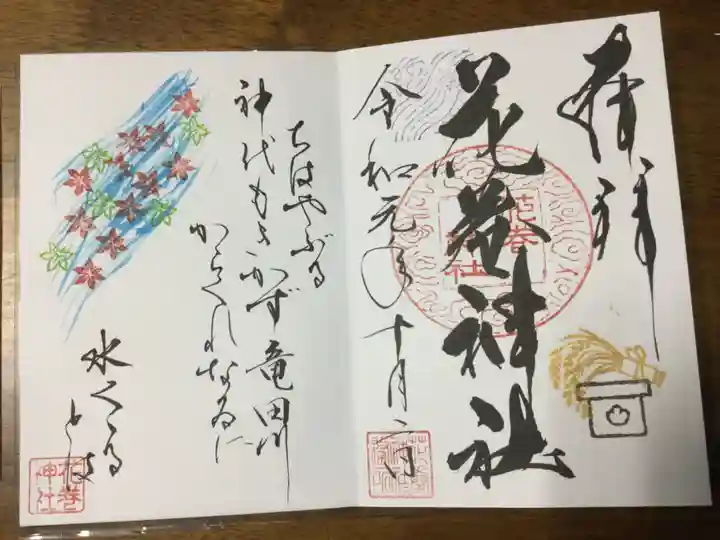 奉拝
花巻神社
令和元年十月二日
花巻
神社
ちはやぶる
神代もきかず竜田川
からくれなゐに
水くくる
とは
花巻
神社